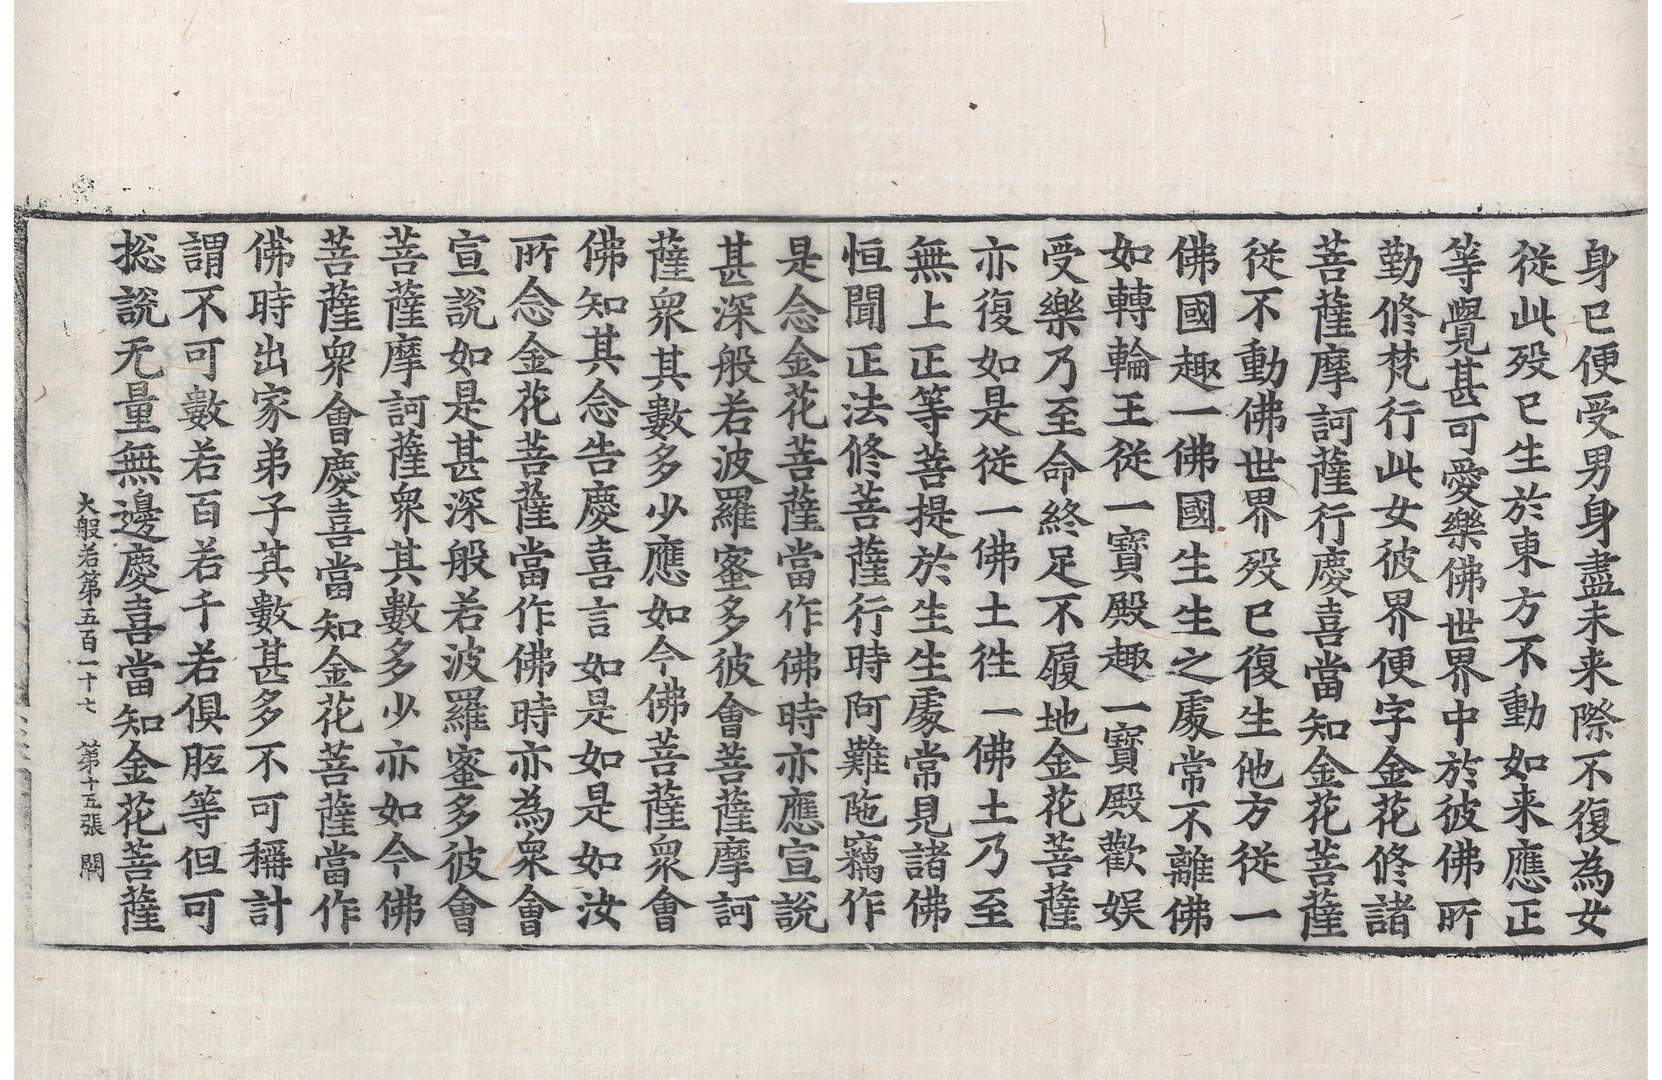 身已便受男身盡未来際不復為女
從此歿已生於東方不動如来應正
等覺甚可愛樂佛世界中於彼佛所
勤修梵行此女彼界便字金花修諸
菩薩摩訶薩行慶喜當知金花菩薩
從不動佛世界歿已復生他方從一
佛國趣一佛國生生之處常不離佛
如轉輪王從一寶殿趣一寶殿歡娱
受樂乃至命終足不履地金花菩薩
亦復如是從一佛土徃一佛土乃至
無上正等菩提於生生處常見諸佛
恒聞正法修菩薩行時阿難陁竊作
是念金花菩薩當作佛時亦應宣說
甚深般若波羅蜜多彼會菩薩摩訶
薩衆其數多少應如今佛菩薩衆會
佛知其念告慶喜言如是如是如汝
所念金花菩薩當作佛時亦為衆會
宣說如是甚深般若波羅蜜多彼會
菩薩摩訶薩衆其數多少亦如今佛
菩薩衆會慶喜當知金花菩薩當作
佛時出家弟子其數甚多不可稱計
謂不可數若百若千若俱胝等但可
揔說无量無邊慶喜當知金花菩薩
大般若第五百一十七 第十五張 闕